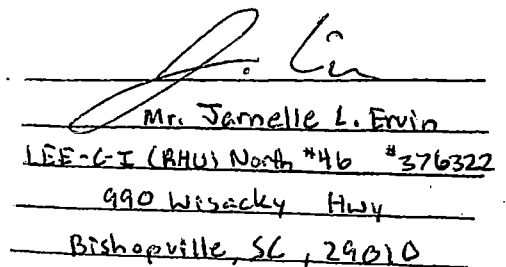 Mr. Jarnelle L. Ervin
LEE-C-I (RHU) North #46 #376322
990 Wisacky Hwy
Bishopville, SC, 29010